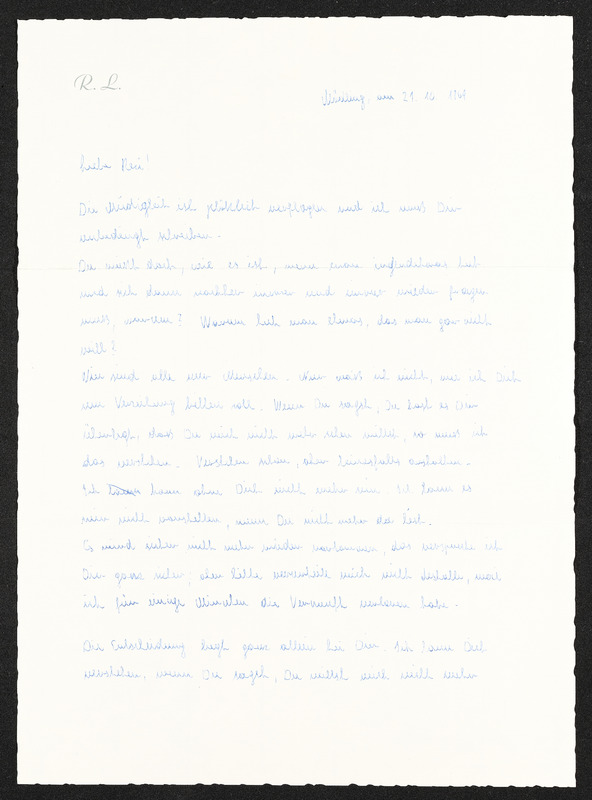 R. L.
Mödling, am 21. 1969
Liebe Resi!
Die Müdigkeit ist plötzlich verflogen und ich muß Dir
unbedingt schreiben.
Du weißt doch, wie es ist, wenn man irgendetwas tut
und sich dann nachher immer und immer wieder fragen
muß, warum? Warum tut man etwas, das man gar nicht
will?
Wir sind alle nur Menschen. Nur weiß ich nicht, wie ich Dich
um Verzeihung bitten soll. Wenn Du sagst, Du hast es Dir
überlegt, dass Du mich nicht mehr sehen willst, so muß ich
das verstehen. Verstehen schon, aber keinesfalls
Ich kann ohne Dich nicht mehr sein. Ich kann es
mir nicht vorstellen, wenn Du nicht mehr da bist.
Es wird sicher nicht mehr wieder vorkommen, das verspreche ich
Dir ganz sicher, aber bitte verurteile mich nicht deshalb, weil
ich für einige Minuten die Vernunft verloren habe.
Die Entscheidung liegt ganz allein bei Dir. Ich kann Dich
verstehen, wenn Du sagst, Du willst mich nicht mehr